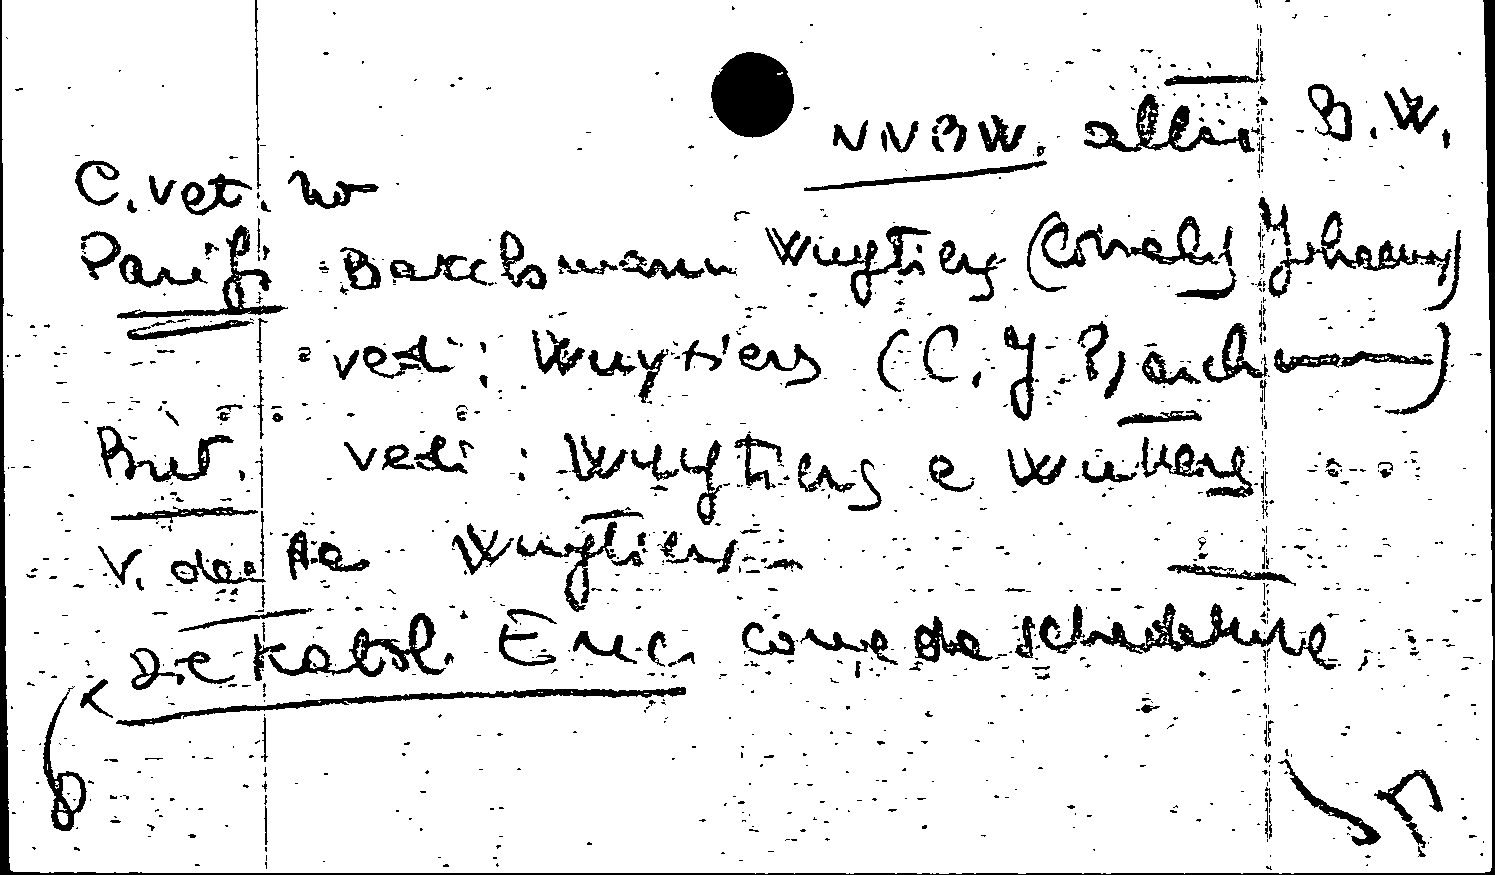 NNBW. altri B.W.
C. vet. no
Parigi Barchmann Wuytiers (Cornelis Johann)
vedi: Wuytiers (C. J B) arch
Brit. vedi: Wuytiers e Wukers
V. der Aa Wuytiers
Die Katol. Enc. come da schedatura